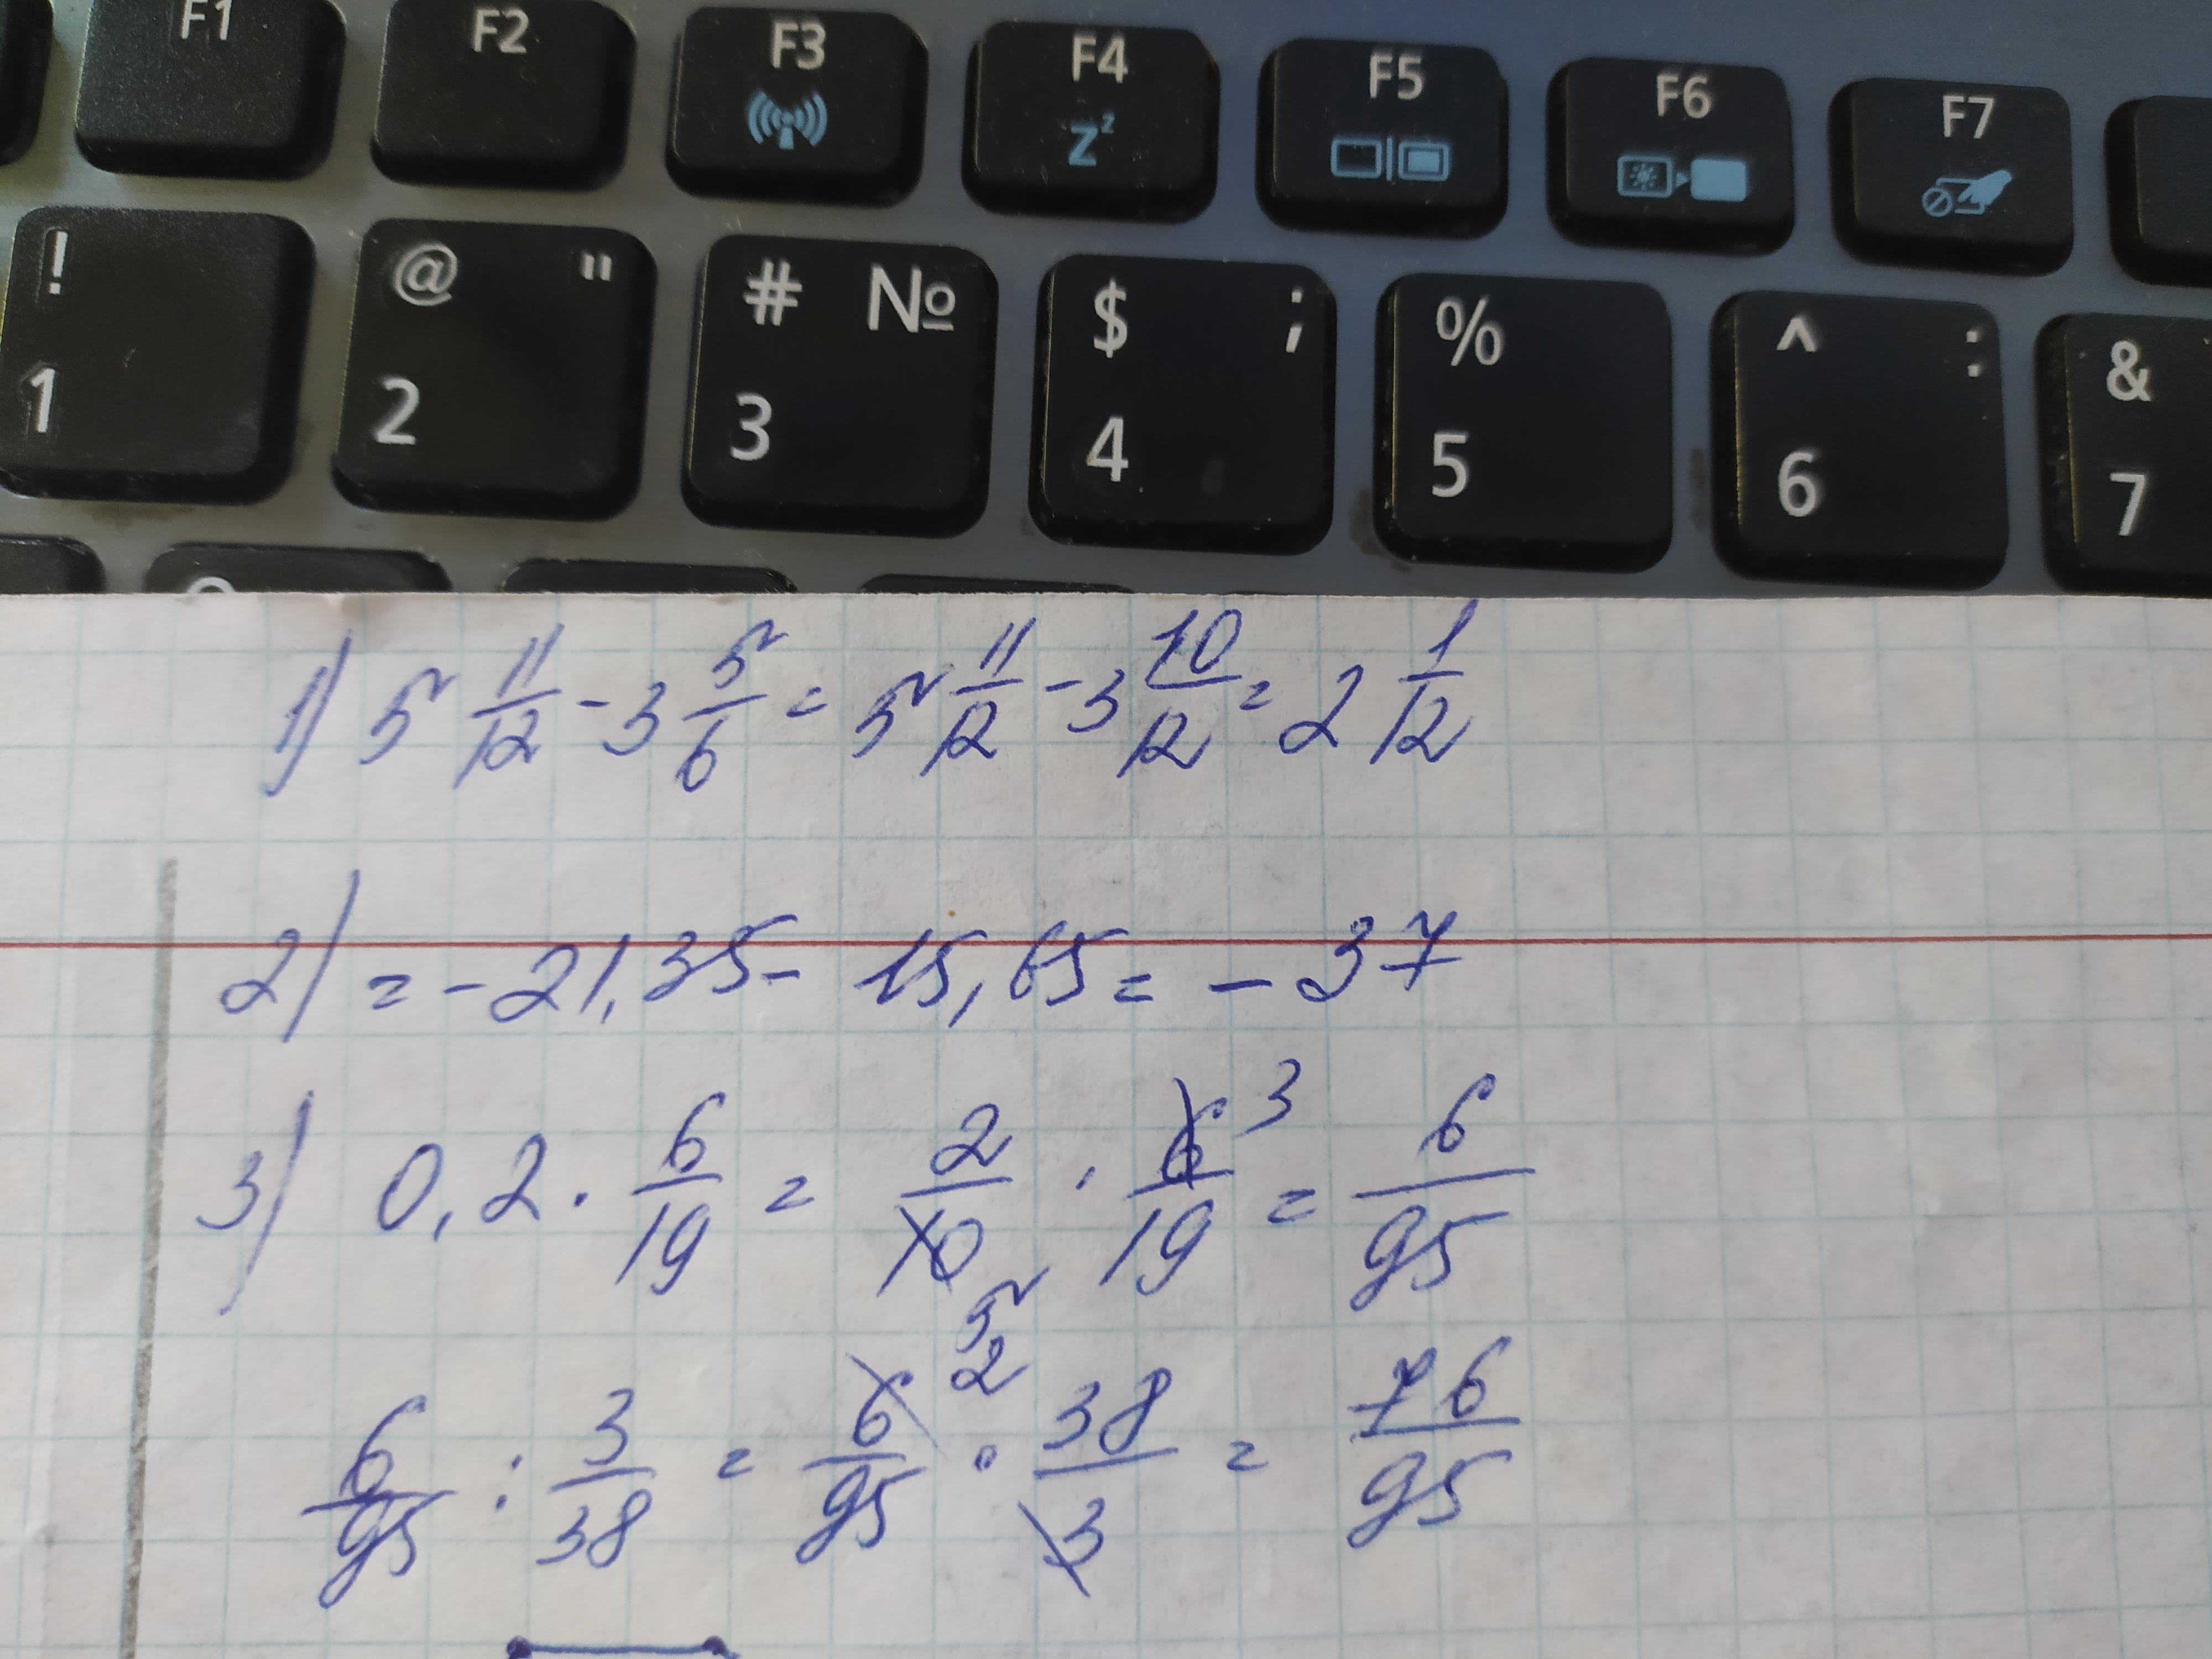 F1 F2 F3 F4 F5 F6 F7
! @ " # № $ ; % ^ : &
1 2 3 4 5 6 7
1) 5 11/12 - 3 5/6 = 5 11/12 - 3 10/12 = 2 1/12
2) = - 21,35 - 15,65 = - 37
3) 0,2 · 6/19 = 2/10 5 · 6/19 3 = 6/95
6/95 : 3/38 = 6/95 2 · 38/3 = 76/95